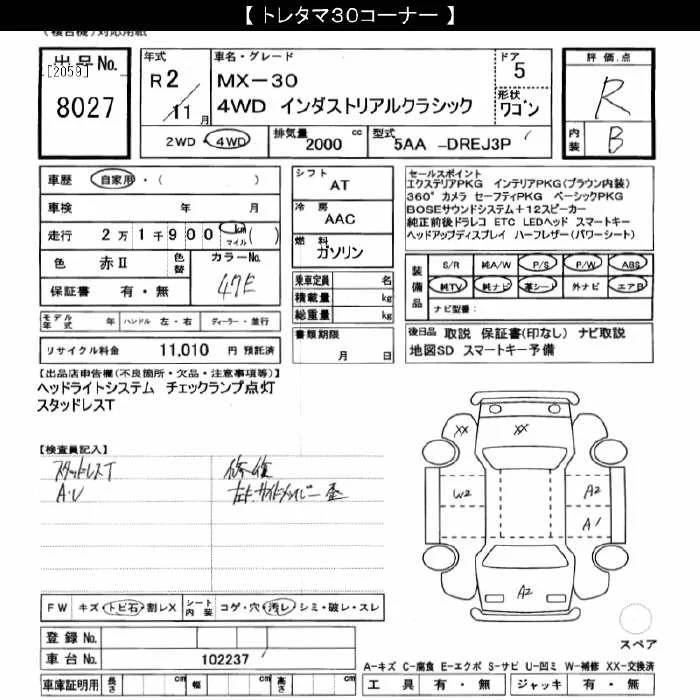 【 トレタマ30コーナー 】
(複合機)対応用紙
出品No.
[2059]
8027
年式
R2/11月
車名・グレード
MX-30
4WD インダストリアルクラシック
ドア
5
形状
ワゴン
評価点
R
内装
B
2WD・4WD
排気量 2000 cc
型式 5AA -DREJ3P
車歴 自家用・( )
車検 年 月
走行 2万1千900 km マイル ( )
色 赤II 色替 カラーNo. 47E
保証書 有・無
モデル年式 年 ハンドル 左・右 ディーラー・並行
リサイクル料金 11,010 円 預託済
シフト
AT
冷房
AAC
燃料
ガソリン
乗車定員 名
積載量 kg
総重量 kg
書類期限
月 日
セールスポイント
エクステリアPKG インテリアPKG(ブラウン内装)
360°カメラ セーフティPKG ベーシックPKG
BOSEサウンドシステム+12スピーカー
純正前後ドラレコ ETC LEDヘッド スマートキー
ヘッドアップディスプレイ ハーフレザー(パワーシート)
装備品
S/R 純A/W P/S P/W ABS
純TV 純ナビ 革シート 外ナビ エアB
ナビ型番:
後日品 取説 保証書(印なし) ナビ取説
地図SD スマートキー予備
【出品店申告欄(不良箇所・欠品・注意事項等)】
ヘッドライトシステム チェックランプ点灯
スタッドレスT
【検査員記入】
スタッドレスT 修復
A.V
XX XX
W2 A2
A1
A2
FW キズ・トビ石・割レX シート内装 コゲ・穴・汚レ・シミ・破レ・スレ
登録No.
車台No. 102237
車庫証明用 長さ cm 幅 cm 高さ cm
スペア
A-キズ C-腐食 E-エクボ S-サビ U-凹ミ W-補修 XX-交換済
工具 有・無 ジャッキ 有・無